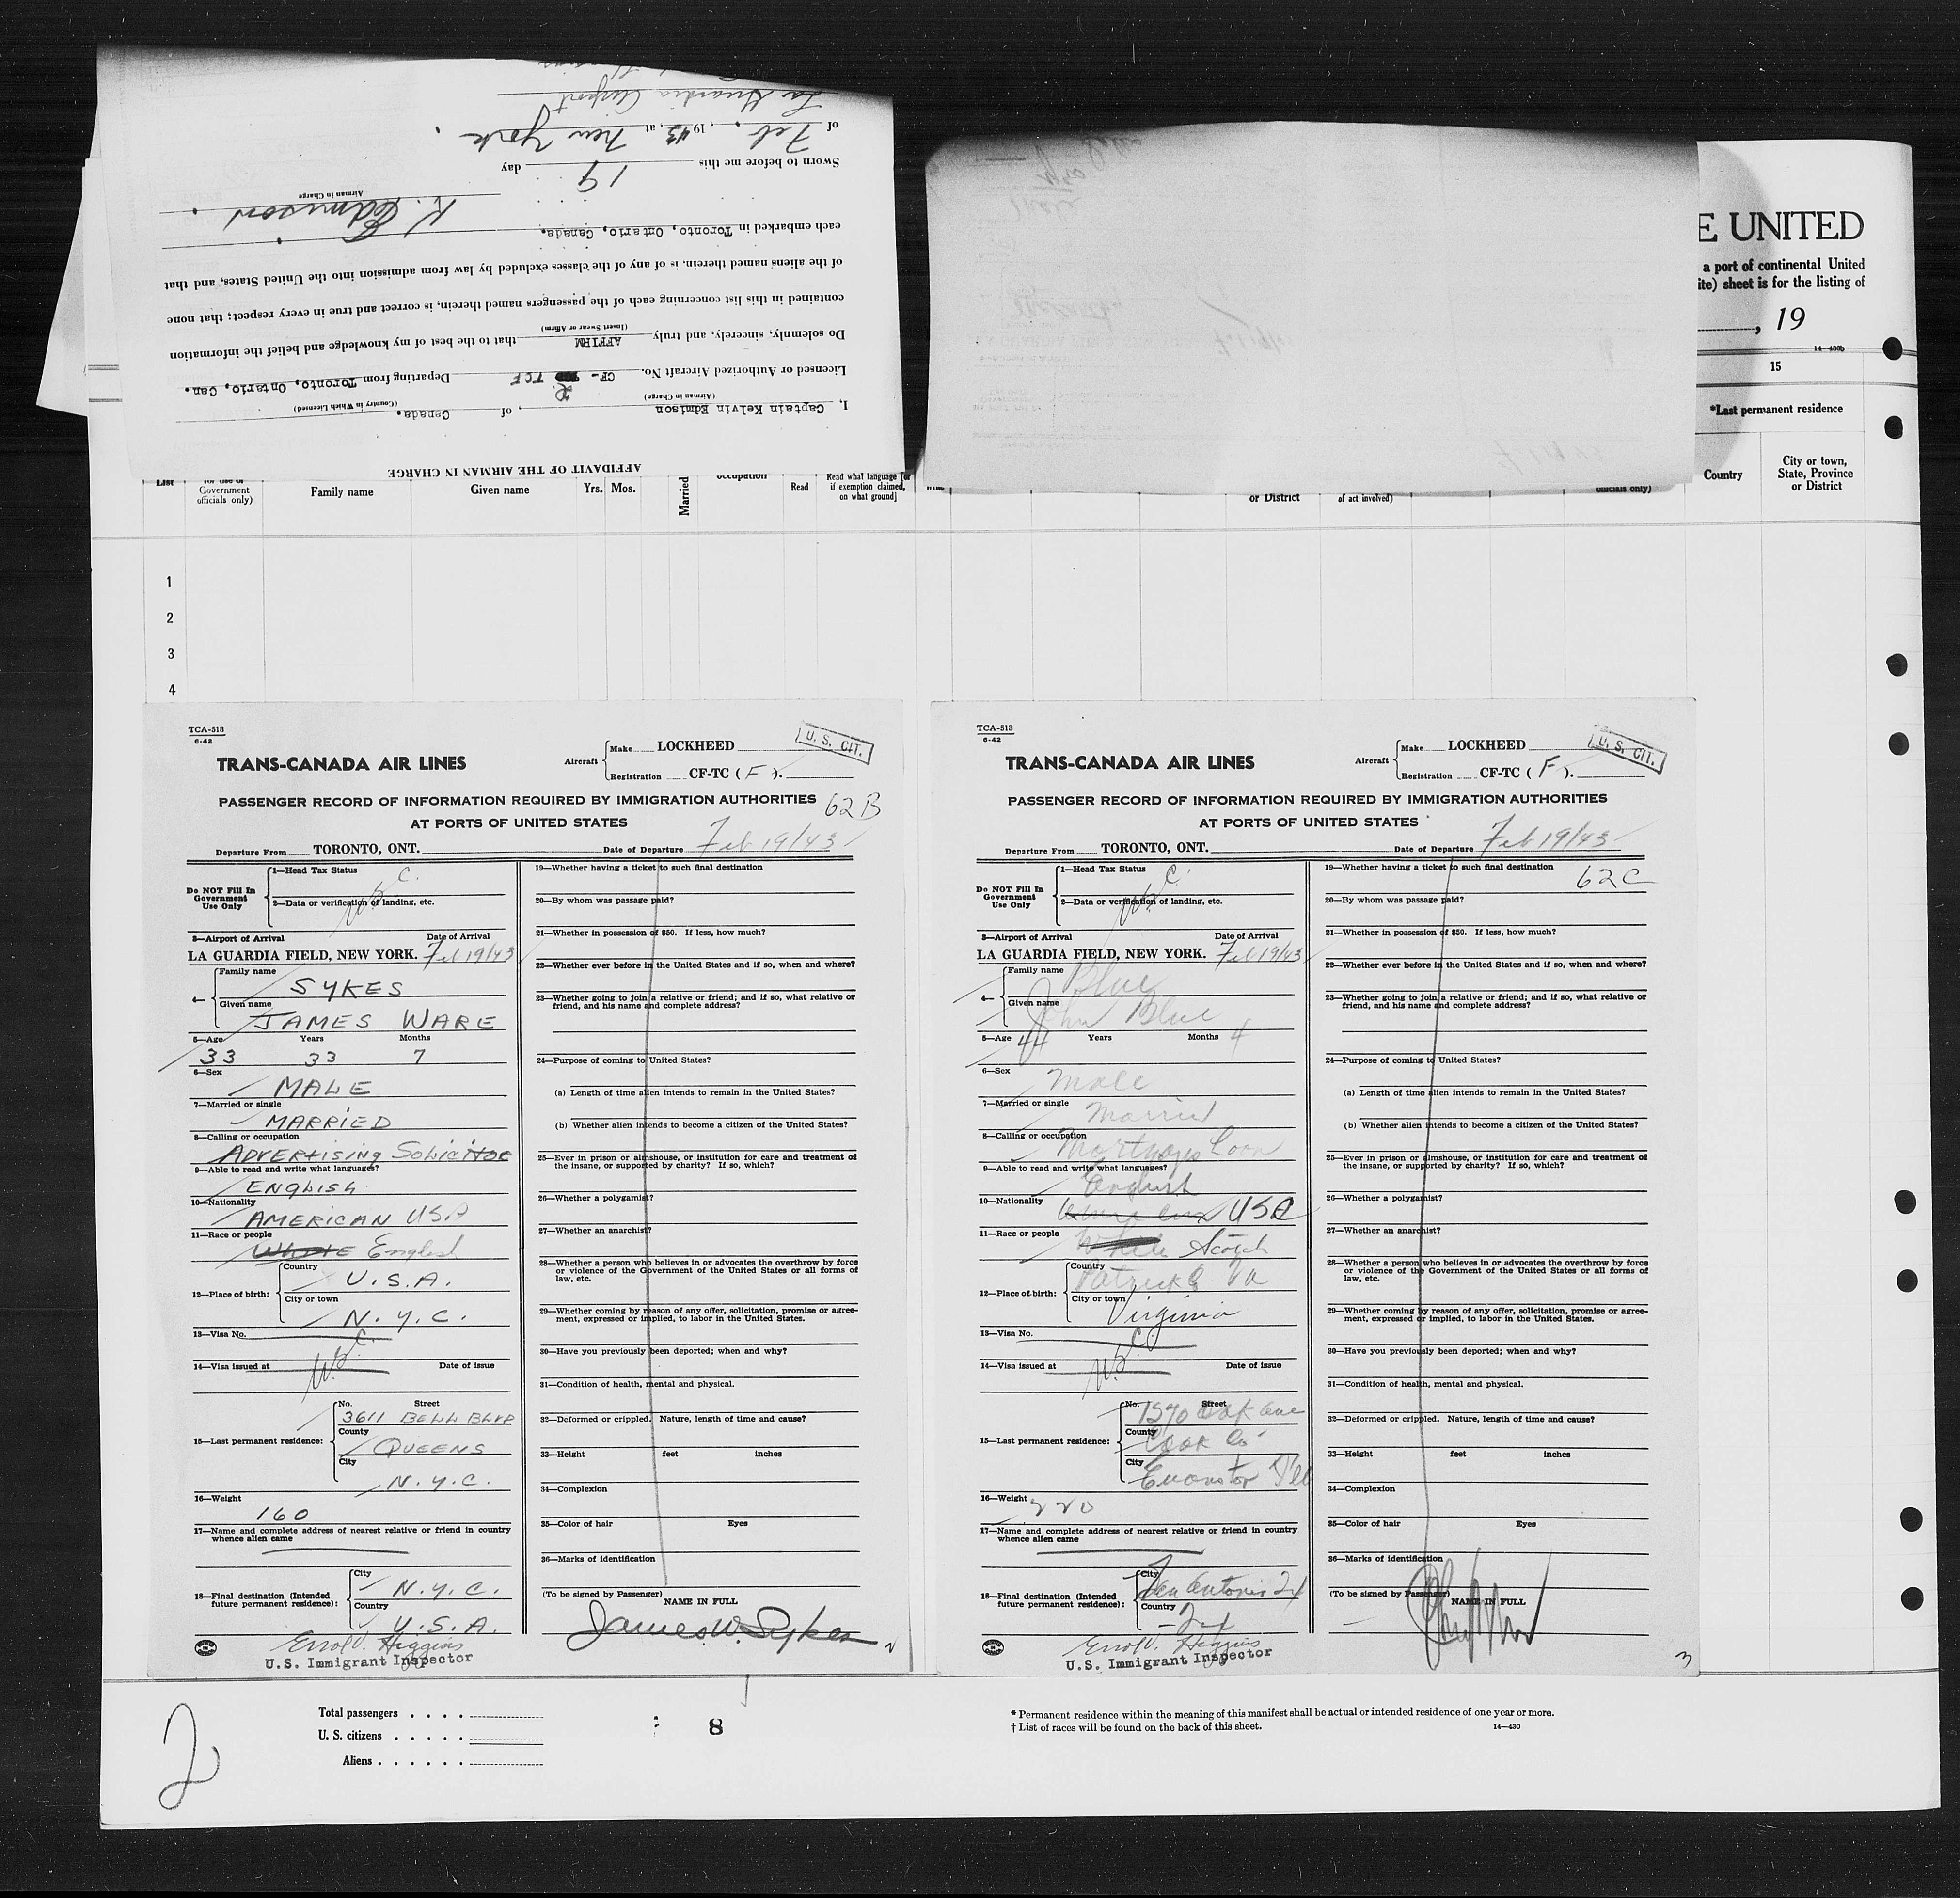 AFFIDAVIT OF THE AIRMAN IN CHARGE
I, Captain Kelvin Edmison, of Canada.
(Airman in Charge) (Country in Which Licensed)
Licensed or Authorized Aircraft No. CF- TCF Departing from Toronto, Ontario, Can.
Do solemnly, sincerely, and truly AFFIRM that to the best of my knowledge and belief the information
(Insert Swear or Affirm)
contained in this list concerning each of the passengers named therein, is correct and true in every respect; that none
of the aliens named therein, is of any of the classes excluded by law from admission into the United States, and that
each embarked in Toronto, Ontario, Canada.
K. Edmison
Airman in Charge
Sworn to before me this 19 day
of Feb., 1943, at New York
La Guardia Airport
E UNITED
a port of continental United
ite) sheet is for the listing of
, 19
15
*Last permanent residence
Country
City or town, State, Province or District
List
Government officials only)
Family name
Given name
Yrs. Mos.
Married
occupation
Read
Read what language [or if exemption claimed, on what ground]
or District
of act involved)
officials only)
1
2
3
4
TCA-513
6-42
TRANS-CANADA AIR LINES
Aircraft
Make LOCKHEED
Registration CF-TC ( F ).
U. S. CIT.
PASSENGER RECORD OF INFORMATION REQUIRED BY IMMIGRATION AUTHORITIES
62B
AT PORTS OF UNITED STATES
Departure From TORONTO, ONT. Date of Departure Feb 19/43
Do NOT Fill In Government Use Only
1—Head Tax Status
2—Data or verification of landing, etc.
3—Airport of Arrival Date of Arrival
LA GUARDIA FIELD, NEW YORK. Feb 19/43
4—
Family name
SYKES
Given name
JAMES WARE
5—Age Years Months
33 33 7
6—Sex
MALE
7—Married or single
MARRIED
8—Calling or occupation
ADVERTISING SOLICITOR
9—Able to read and write what languages?
ENGLISH
10—Nationality
AMERICAN USA
11—Race or people
WHITE English
12—Place of birth:
Country
U.S.A.
City or town
N.Y.C.
13—Visa No.
14—Visa issued at Date of issue
15—Last permanent residence:
No. Street
3611 BELL BLVD
County
QUEENS
City
N.Y.C.
16—Weight
160
17—Name and complete address of nearest relative or friend in country whence alien came
18—Final destination (Intended future permanent residence):
City
N.Y.C.
Country
U.S.A.
Errol V. Higgins
U.S. Immigrant Inspector
19—Whether having a ticket to such final destination
20—By whom was passage paid?
21—Whether in possession of $50. If less, how much?
22—Whether ever before in the United States and if so, when and where?
23—Whether going to join a relative or friend; and if so, what relative or friend, and his name and complete address?
24—Purpose of coming to United States?
(a) Length of time alien intends to remain in the United States?
(b) Whether alien intends to become a citizen of the United States?
25—Ever in prison or almshouse, or institution for care and treatment of the insane, or supported by charity? If so, which?
26—Whether a polygamist?
27—Whether an anarchist?
28—Whether a person who believes in or advocates the overthrow by force or violence of the Government of the United States or all forms of law, etc.
29—Whether coming by reason of any offer, solicitation, promise or agreement, expressed or implied, to labor in the United States.
30—Have you previously been deported; when and why?
31—Condition of health, mental and physical.
32—Deformed or crippled. Nature, length of time and cause?
33—Height feet inches
34—Complexion
35—Color of hair Eyes
36—Marks of identification
(To be signed by Passenger) NAME IN FULL
James W. Sykes
2
TCA-513
6-42
TRANS-CANADA AIR LINES
Aircraft
Make LOCKHEED
Registration CF-TC ( F ).
U. S. CIT.
PASSENGER RECORD OF INFORMATION REQUIRED BY IMMIGRATION AUTHORITIES
AT PORTS OF UNITED STATES
Departure From TORONTO, ONT. Date of Departure Feb 19/43
Do NOT Fill In Government Use Only
1—Head Tax Status
2—Data or verification of landing, etc.
3—Airport of Arrival Date of Arrival
LA GUARDIA FIELD, NEW YORK. Feb 19/43
4—
Family name
Blue
Given name
John Blue
5—Age 44 Years Months 4
6—Sex
Male
7—Married or single
Married
8—Calling or occupation
Mortgage Loan
9—Able to read and write what languages?
English
10—Nationality
USA
11—Race or people
White Scotch
12—Place of birth:
Country
Patrick Co Va
City or town
Virginia
13—Visa No.
14—Visa issued at Date of issue
15—Last permanent residence:
No. Street
1570 Oak Ave
County
Cook Co
City
Evanston Ill
16—Weight
220
17—Name and complete address of nearest relative or friend in country whence alien came
18—Final destination (Intended future permanent residence):
City
San Antonio Tex
Country
Errol V. Higgins
U.S. Immigrant Inspector
19—Whether having a ticket to such final destination
62C
20—By whom was passage paid?
21—Whether in possession of $50. If less, how much?
22—Whether ever before in the United States and if so, when and where?
23—Whether going to join a relative or friend; and if so, what relative or friend, and his name and complete address?
24—Purpose of coming to United States?
(a) Length of time alien intends to remain in the United States?
(b) Whether alien intends to become a citizen of the United States?
25—Ever in prison or almshouse, or institution for care and treatment of the insane, or supported by charity? If so, which?
26—Whether a polygamist?
27—Whether an anarchist?
28—Whether a person who believes in or advocates the overthrow by force or violence of the Government of the United States or all forms of law, etc.
29—Whether coming by reason of any offer, solicitation, promise or agreement, expressed or implied, to labor in the United States.
30—Have you previously been deported; when and why?
31—Condition of health, mental and physical.
32—Deformed or crippled. Nature, length of time and cause?
33—Height feet inches
34—Complexion
35—Color of hair Eyes
36—Marks of identification
(To be signed by Passenger) NAME IN FULL
3
2
Total passengers
U. S. citizens
Aliens
8
* Permanent residence within the meaning of this manifest shall be actual or intended residence of one year or more.
† List of races will be found on the back of this sheet. 14—430